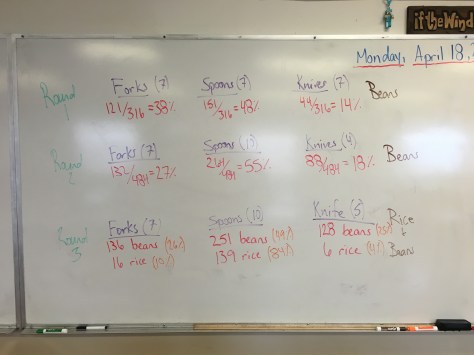 if the Wind
Monday, April 18,
Round
Forks (7) Spoons (7) Knives (7) Beans
121/316=38% 151/316=48% 44/316=14%
Round 2
Forks (7) Spoons Knives (4) Beans
132/484=27% 264/484=55% 88/484=18%
Round 3
Forks (7) Spoons (10) Knife (5) Rice
136 beans (26%) 251 beans (49%) 128 beans (25%) Beans
16 rice (10%) 139 rice 6 rice (4%)